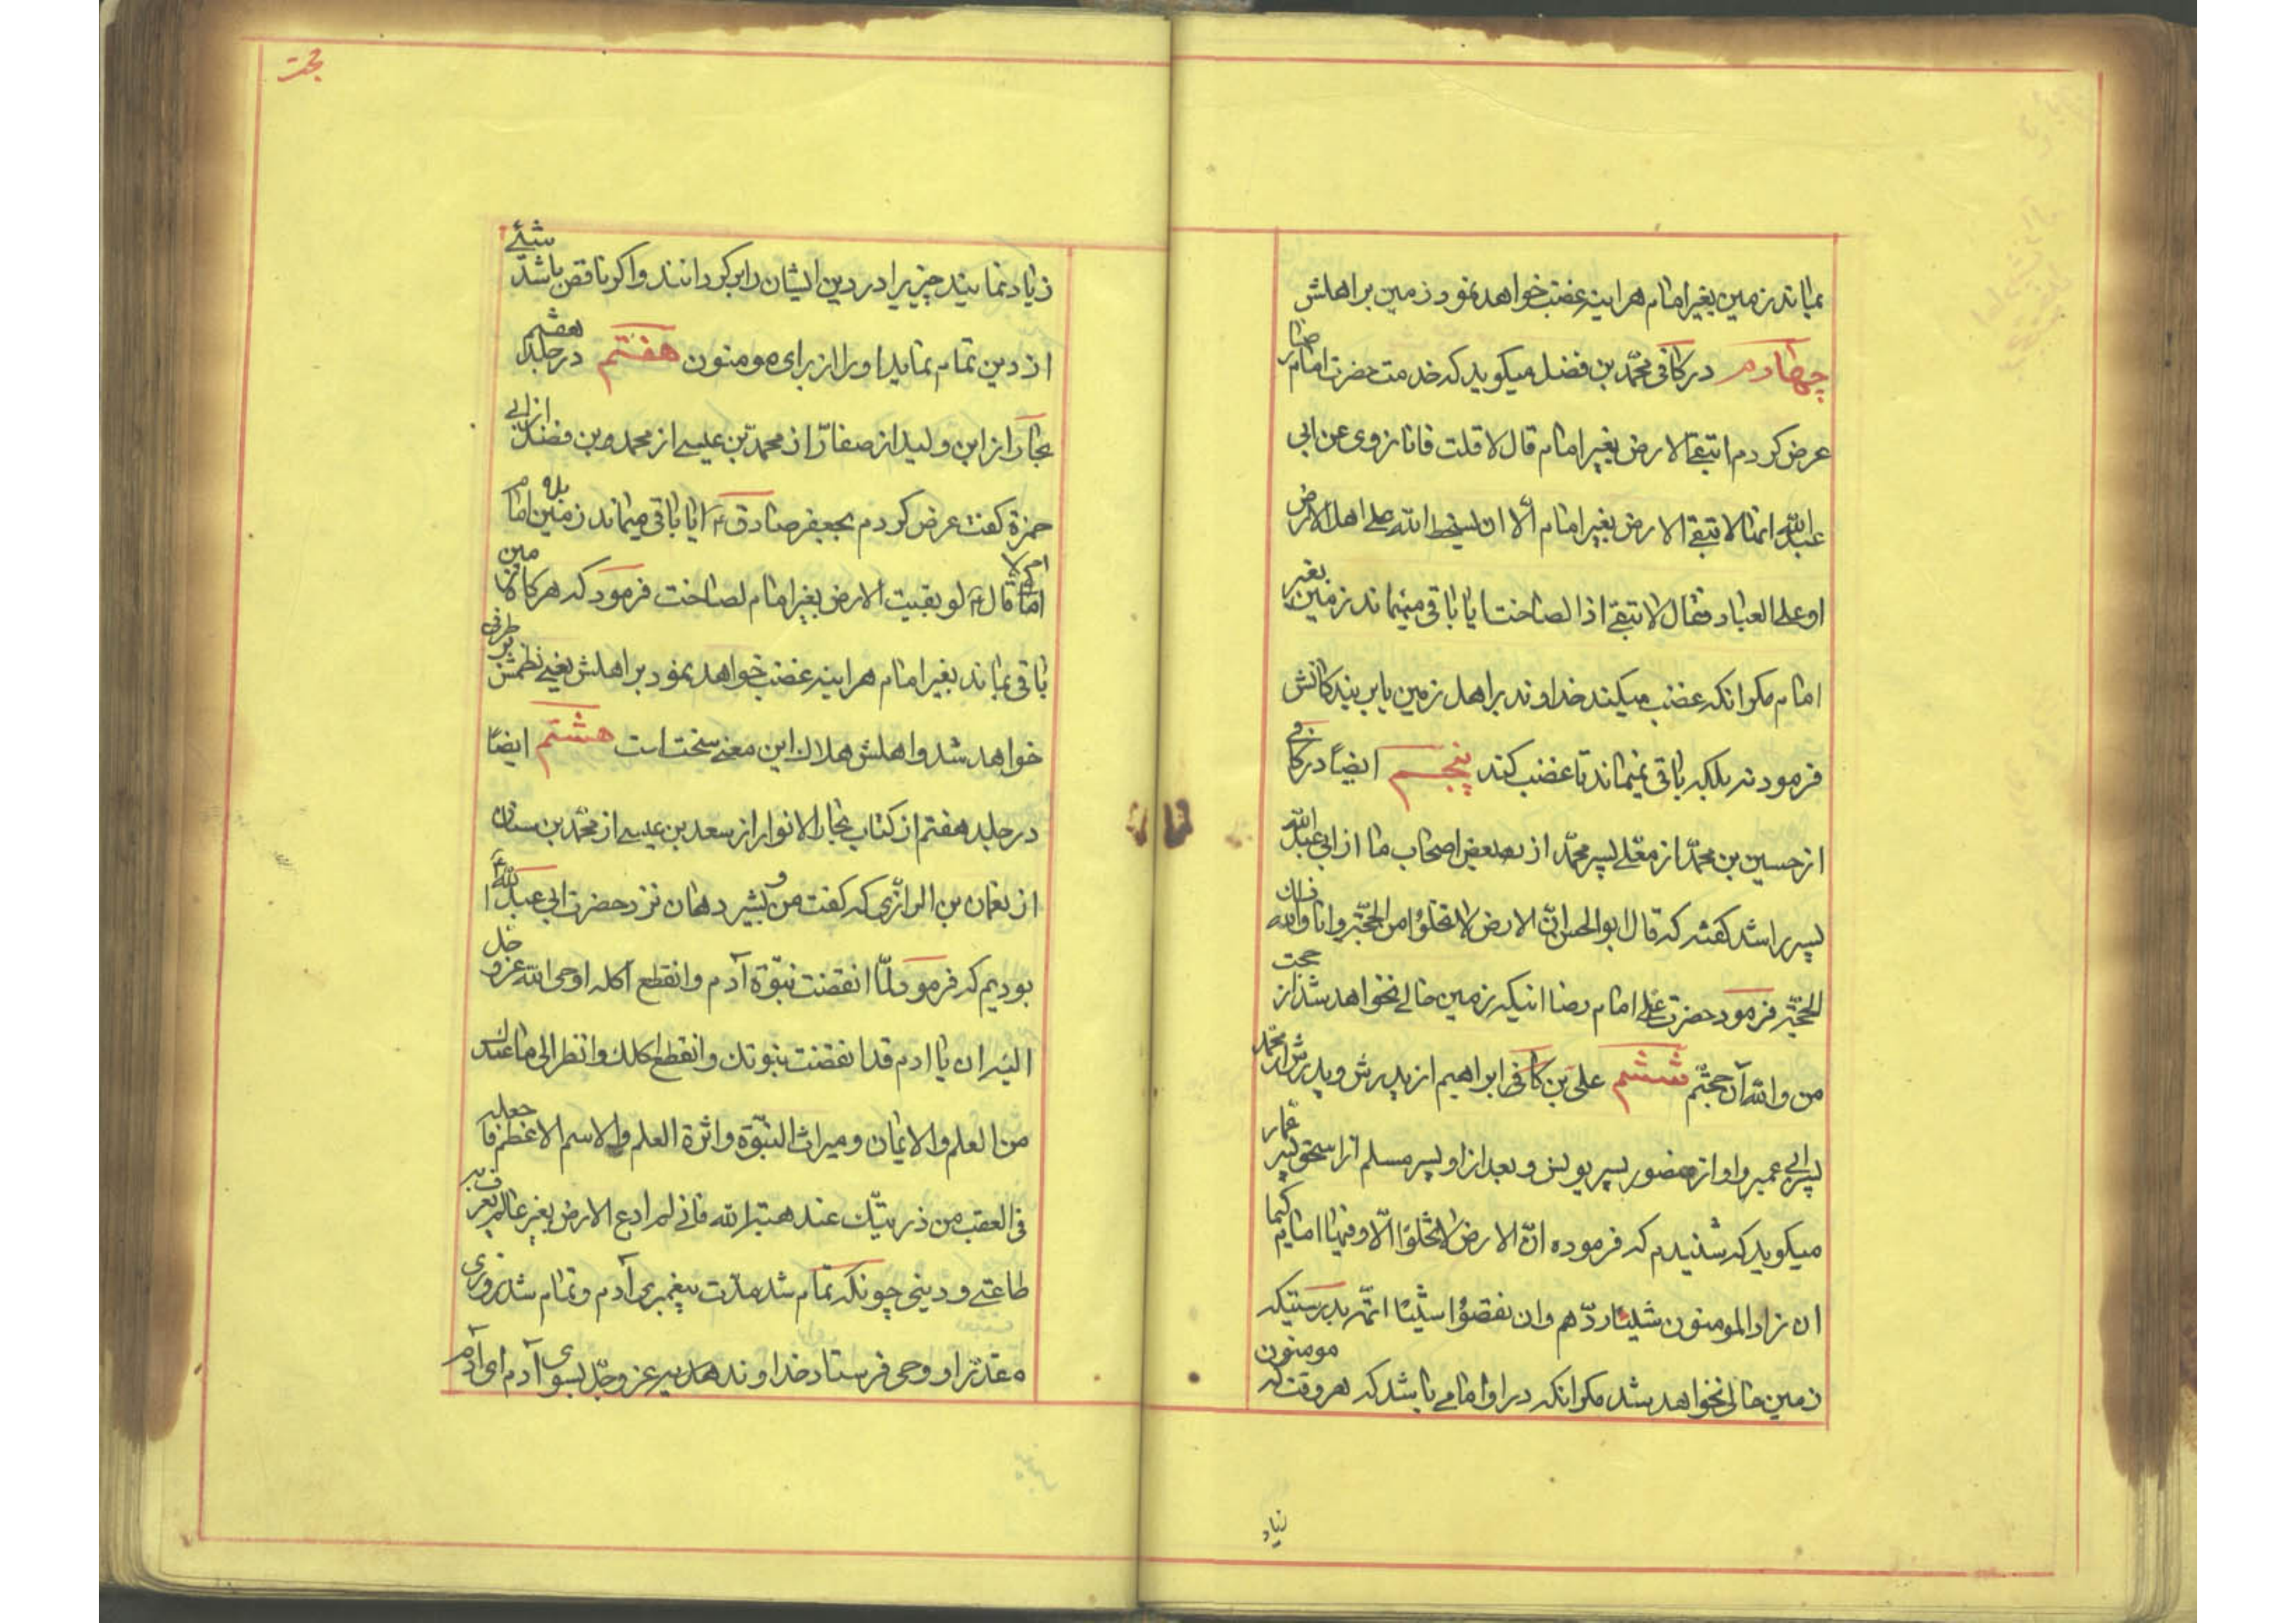 بماند زمین بغیر امام هراینه غضب خواهد نمود زمین بر اهلش
چهارم در کافی محمّد بن فضل میکوید که خدمت حضرت امام رضا
عرض کردم اتبقی الارض بغیر امام قال لا قلت فانا نروی عن ابی
عبدالله انها لا تبقی الارض بغیر امام الّا ان یسخط الله علی اهل الارض
او علی العباد فقال لا تبقی اذا لصاخت ایا باقی میماند زمین بغیر
امام مکر انکه غضب میکند خداوند بر اهل زمین یا بر بندکانش
فرمود نه بلکه باقی نمیماند تا غضب کند پنجم ایضاً در کافی
از حسین بن محمّد از معلّی پسر محمّد از بعض اصحاب ما از ابی عبدالله
پسر راشد کفته که قال ابوالحسن انّ الارض لا تخلوا من الحجّة وانا والله ذلک
الحجّة فرمود حضرت علی امام رضا اینکه زمین خالی نخواهد شد از حجت
من والله آن حجتم ششم علی بن کافی ابراهیم از پدرش و پدرش از محمّد
پسر ابی عمیر و او از منصور پسر یونس و بعد از او پسر مسلم از اسحق پسر عمّار
میکوید که شنیدم که فرموده انّ الارض لا تخلوا الّا و فیها امام کیما
ان زاد المومنون شیئا ردّهم وان نقصوا شیئا اتمّه بدرستیکه
زمین خالی نخواهد شد مکر انکه در او امامی باشد که هر وقت که مومنون
زیاد
حجت
زیاد نمایند چیزیرا در دین ایشان را برکردانند و اکر ناقص باشد شیئی
از دین تمام نماید او را از برای مومنون هفتم در جلد هفتم
بحار از ابن ولید از صفار از محمّد بن عیسی از محمد بن فضل از ابی
حمزة کفت عرض کردم بجعفر صادق ایا باقی میماند زمین بلا امام
ام لا قال لو بقیت الارض بغیر امام لصاخت فرمود که هرکاه زمین
باقی بماند بغیر امام هراینه غضب خواهد نمود بر اهلش یعنی نظمش بر طرف
خواهد شد و اهلش هلاک این معنی سخت است هشتم ایضاً
در جلد هفتم از کتاب بحار الانوار از سعد بن عیسی از محمّد بن سنان
از نعمان بن الرازی که کفت من و بشیر دهان نزد حضرت ابی عبدالله
بودیم که فرمود لمّا انقضت نبوّة آدم وانقطع اکله اوحی الله عزّ وجل
الیه ان یا ادم قد انقضت نبوتک وانقطع اکلک وانظر الی ما عندک
من العلم والایمان ومیراث النبوّة واثرة العلم والاسم الاعظم فاجعله
فی العقب من ذریتک عند هبة الله فانی لم ادع الارض بغیر عالم یعرف به
طاعتی و دینی چونکه تمام شد مدّت پیغمبری آدم و تمام شد روزی
مقدّر او وحی فرستاد خداوند هدیه عزّ وجلّ بسوی آدم ای آدم